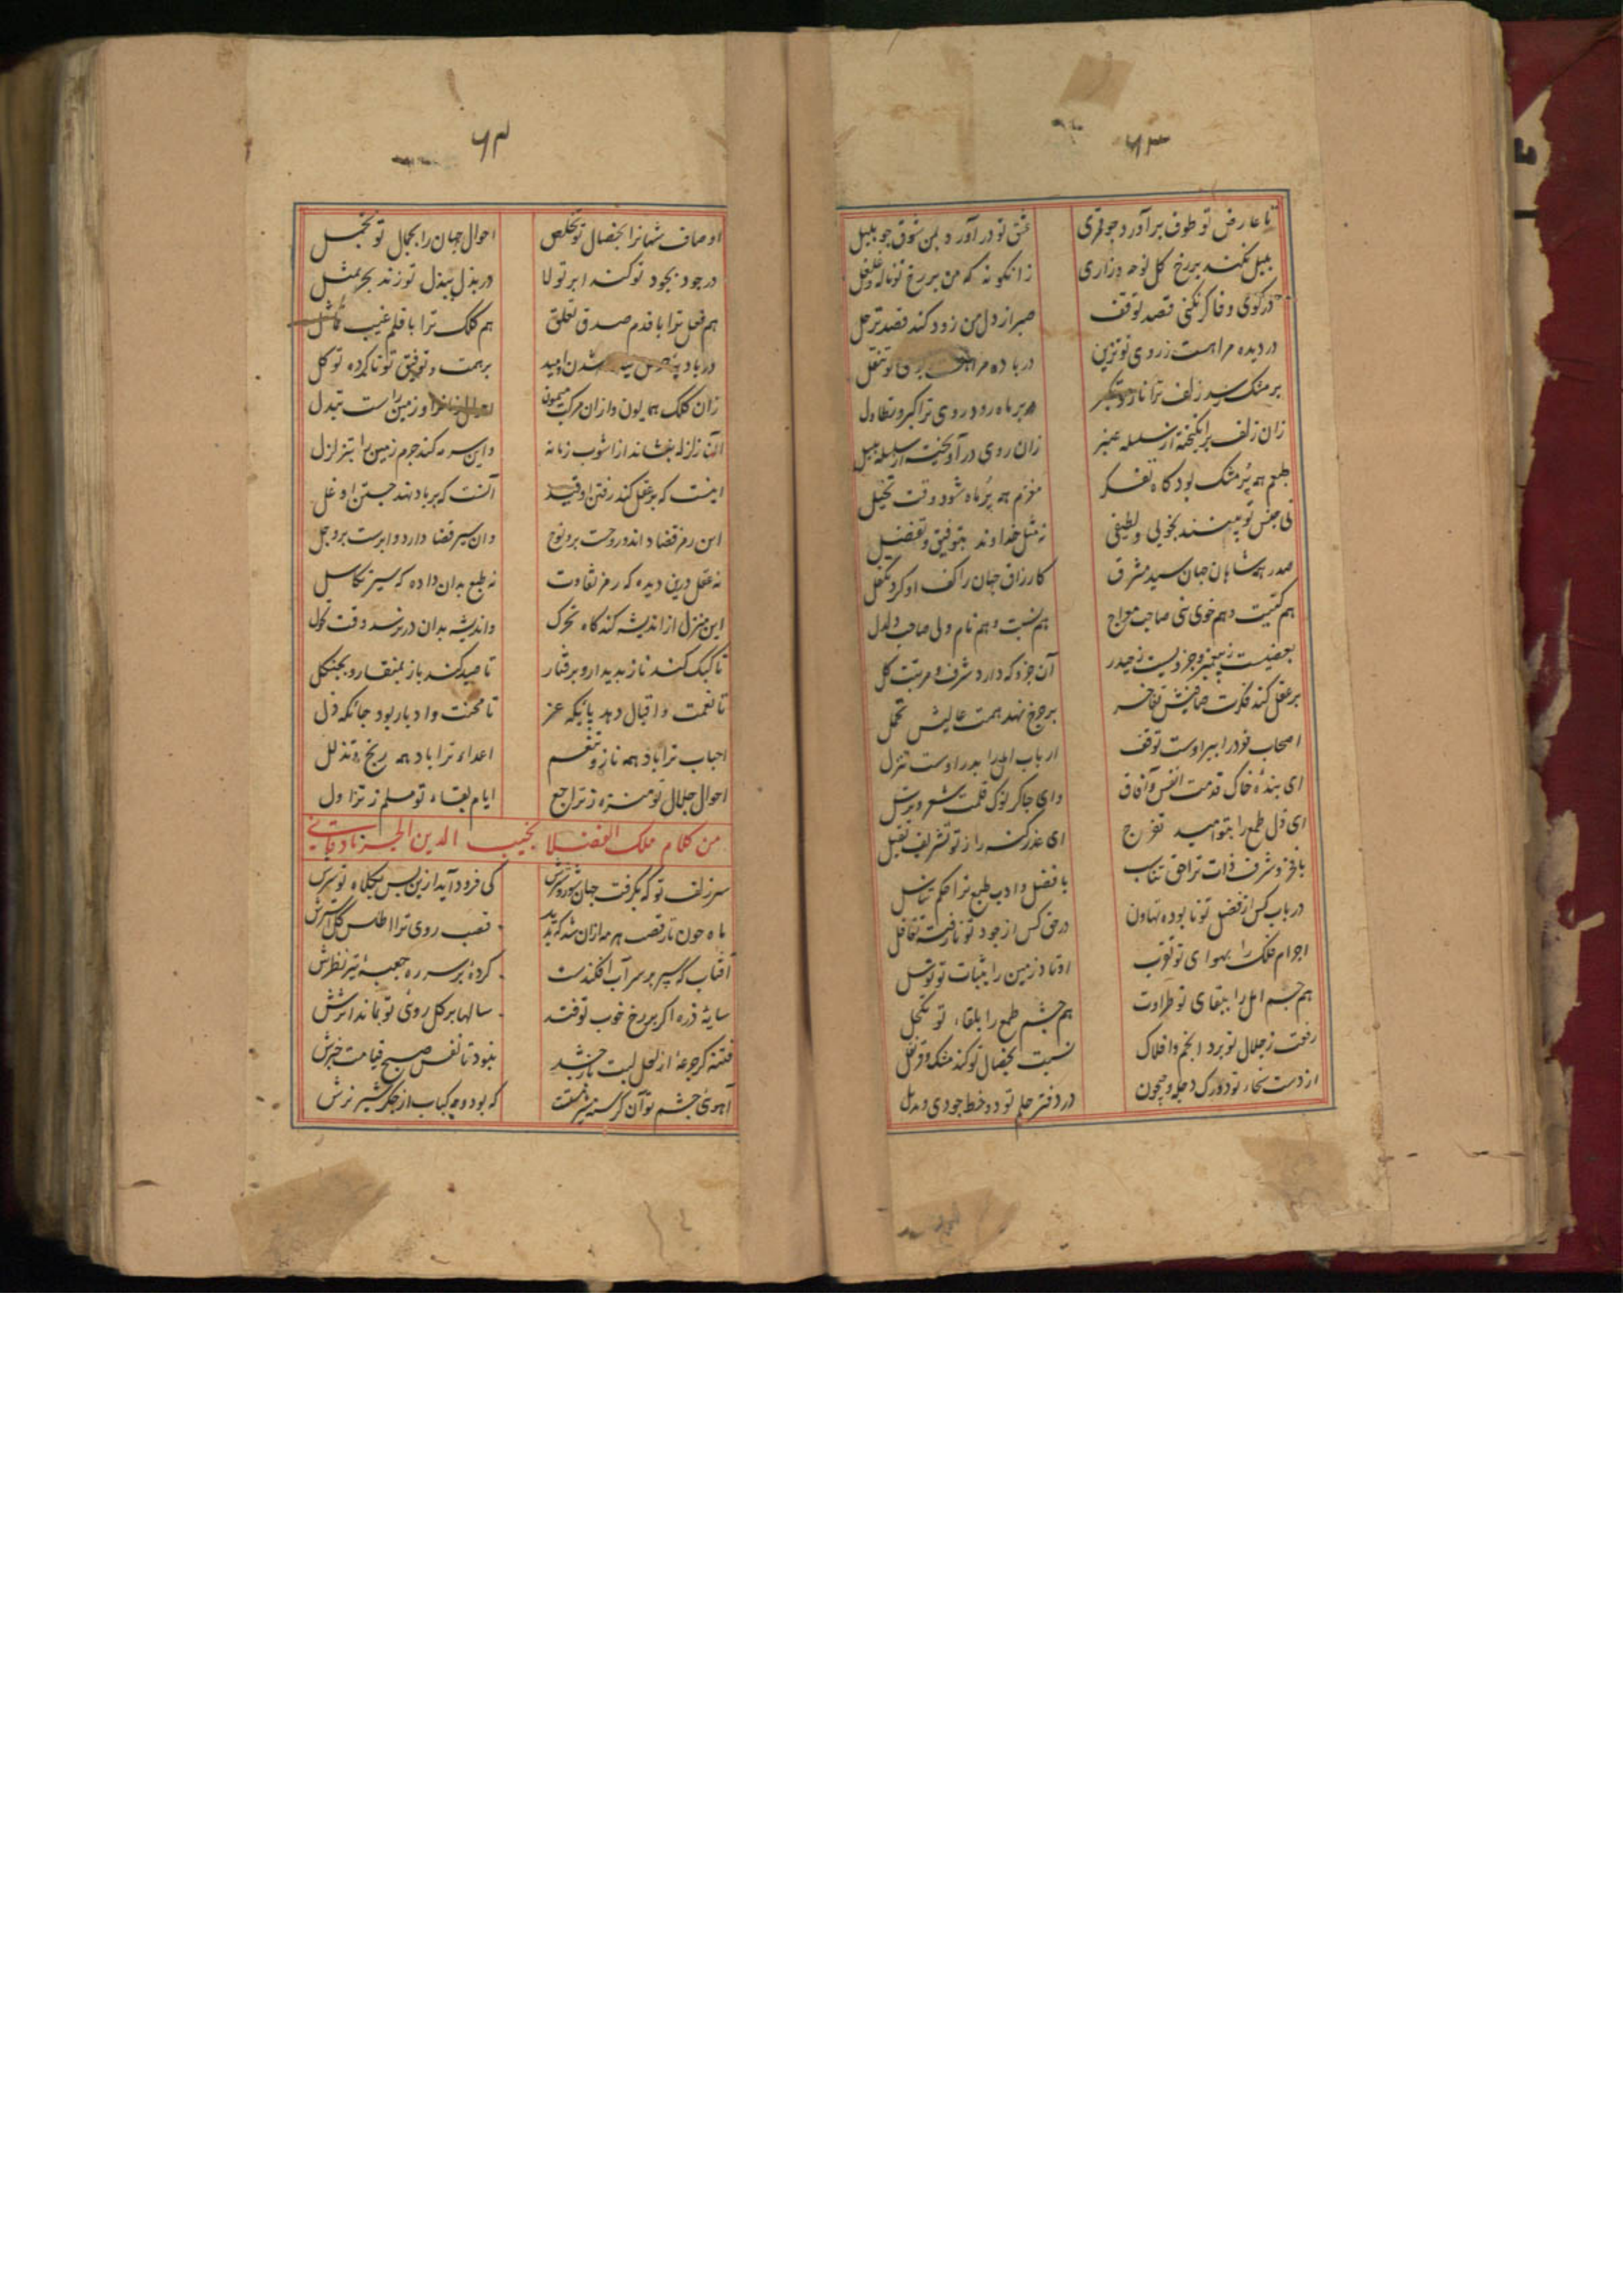 ۶۳
تا عارض تو طوف برآورد چو قمری عشق تو درآورد بمن شوق چو بلبل
بلبل نکند بر رخ گل نوحه و زاری زانگونه که من بر رخ تو ناله و غلغل
در کوی وفا گر نکنی قصد توقف صبر از دل من زود کند قصد ترحل
در دیده مرا هست ز روی تو تزین در باده مرا هست تو تنقل
بر مشک سیه زلف ترا ناز و تکبر بر ماه رود روی ترا کبر و تطاول
زان زلف برانگیخته از سلسله عنبر زان روی درآویخته از سلسله بلبل
طبعم همه پر مشک بود گاه تفکر مغزم همه پر ماه شود وقت تخیل
نی جنس تو بینند بخوبی و لطیفی نه مثل خداوند بتوفیق و تفضل
صدر همه شاهان جهان سید مشرق کارزاق جهان را کف او کرد تکفل
هم کنیت و هم خوی نبی صاحب معراج هم نسبت و هم نام ولی صاحب دلدل
بعضیست ز پیغمبر و جزویست ز حیدر آن جزو که دارد شرف و مرتبت کل
بر عقل کند فکرت صافیش تفاخر بر چرخ نهد همت عالیش تحمل
اصحاب خود را بر او است توقف ارباب امل را بدر اوست تنزل
ای بندهٔ خاک قدمت انفس و آفاق وای چاکر نوک قلمت شعر و ترسل
ای دل طمع را بتو امید تفرج ای عذر کرم را ز تو تشریف تقبل
با فخر و شرف ذات ترا حق تناسب با فضل و ادب طبع ترا حکم تناسل
در باب کس از فضل تو نابوده تهاون در حق کس از جود تو نارفته تغافل
اجرام فلک را بهوای تو تقرب اوتاد زمین را بثبات تو توسل
هم جسم امل را ببقای تو طراوت هم چشم طمع را بلقاء تو تکحل
رفعت ز جلال تو برد انجم و افلاک نسبت بخصال تو کند مشک و قرنفل
از دست سخاء تو دو رگ دجله و جیحون در دفتر حلم تو دو خط جودی و یذبل
۶۴
اوصاف شهانرا بخصال تو تخلص احوال جهان را بجمال تو تجمل
در جود بجود تو کند ابر تولا در بذل ببذل تو زند بحر تمثل
هم فعل ترا با قدم صدق تعلق هم کلک ترا با قلم غیب تماثل
بر همت و توفیق تو ناکرده توکل
زان کلک همایون و ازان مرکب میمون و زمین راست تبدل
آنرا زلزله بنشاند از آشوب زمانه واین سرمه کند جرم زمین را بتزلزل
اینست که بر عقل کند رفتن او قید آنست که بر باد نهد جستن او غل
این رمز قضا داند و روحست برو نوح وان سیر قضا دارد و ابرست برو جل
نه عقل درین دیده که رمز تفاوت نه طبع بدان داده که سیر تکاسل
این منزل از اندیشه کند گاه تحرک واندیشه بدان در نرسد وقت تحول
تا کبک کند ناز بدیدار و برفتار تا صید کند باز بمنقار و بچنگل
تا نعمت و اقبال دهد پایگه عز تا محنت و ادبار بود جایگه ذل
احباب ترا باد همه ناز و تنعم اعداء ترا باد همه رنج و تذلل
احوال جلال تو منزه ز تراجع ایام بقاء تو مسلم ز تزاول
من کلام ملک الفضلا نجیب الدین الجرفادقانی
سر زلف تو که بگرفت جهان شور و شرش کی فرود آید ازین پس بکلاه تو سرش
ماه چون تار قصب هر مه ازان شد که ندید قصب روی ترا اطلس گل آسترش
آفتاب که سپر بر سر آب افکندست کردهٔ بر سر ره جعبهٔ تیر نظرش
سایهٔ ذره اگر بر رخ خوب تو فتد سالها بر گل روی تو بماند اثرش
فتنه گر جرعهٔ از لعل لبت باز چشد نبود تا نفس صبح قیامت خبرش
آهوی چشم تو آن کرسنه شیر که بود وجه کباب از جگر شیر نرش